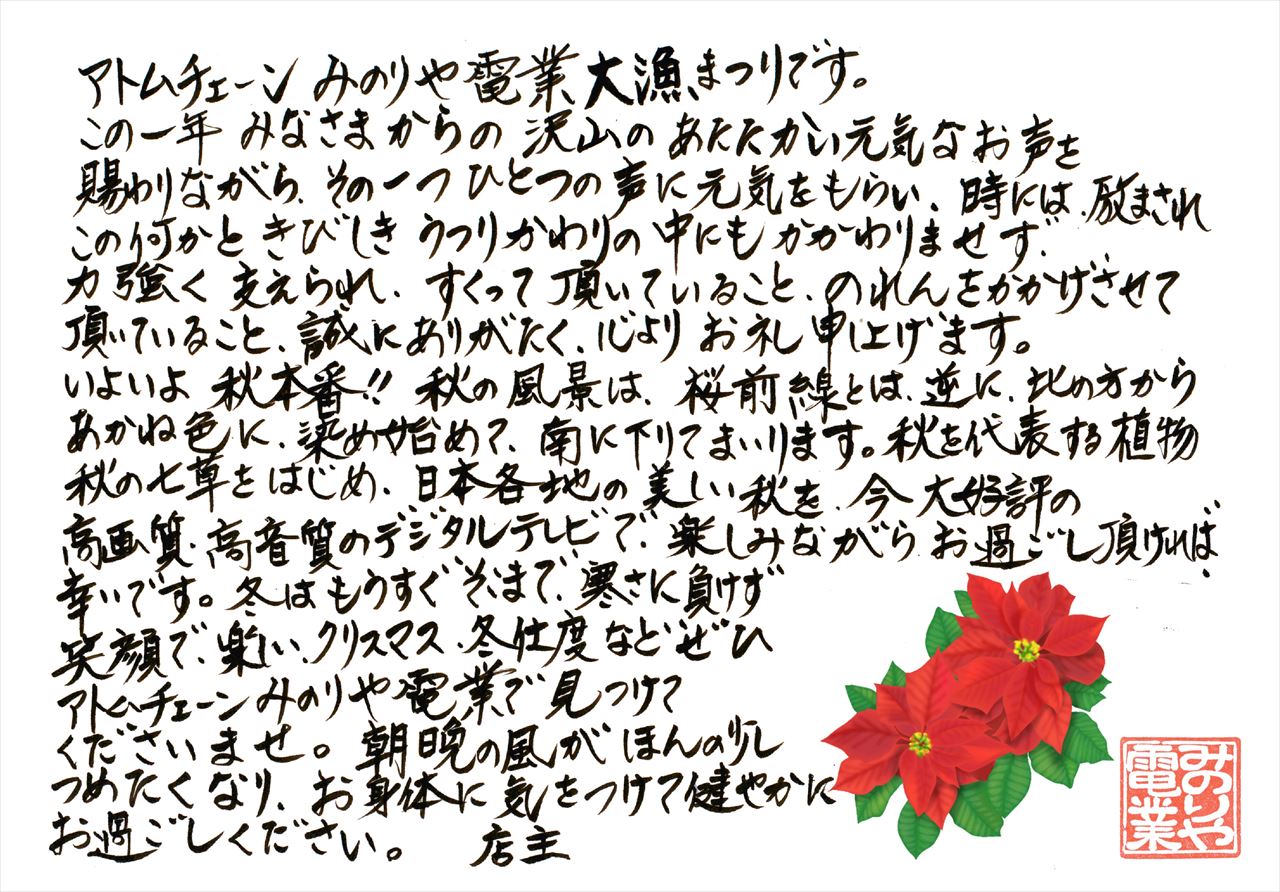 アトムチェーン みのりや電業大漁まつりです。
この一年 みなさまからの 沢山の あたたかい元気なお声を
賜わりながら、その一つひとつの声に元気をもらい、時には、励まされ
この何かと きびしき うつりかわりの中にもかかわりませず、
力強く 支えられ、すくって頂いていること、のれんをかかげさせて
頂いていること、誠にありがたく、心より お礼申し上げます。
いよいよ 秋本番!! 秋の風景は、桜前線とは、逆に、北の方から
あかね色に、染め始めて、南に下りてまいります。秋を代表する植物
秋の七草をはじめ、日本各地の美しい秋を、今大好評の
高画質、高音質のデジタルテレビで、楽しみながら お過ごし頂ければ、
幸いです。冬はもうすぐそこまで、寒さに負けず
笑顔で、楽しい、クリスマス、冬仕度など、ぜひ
アトムチェーンみのりや電業で見つけて
くださいませ。朝晩の風がほんの少し
つめたくなり、お身体に気をつけて健やかに
お過ごしください。 店主
みのりや
電業